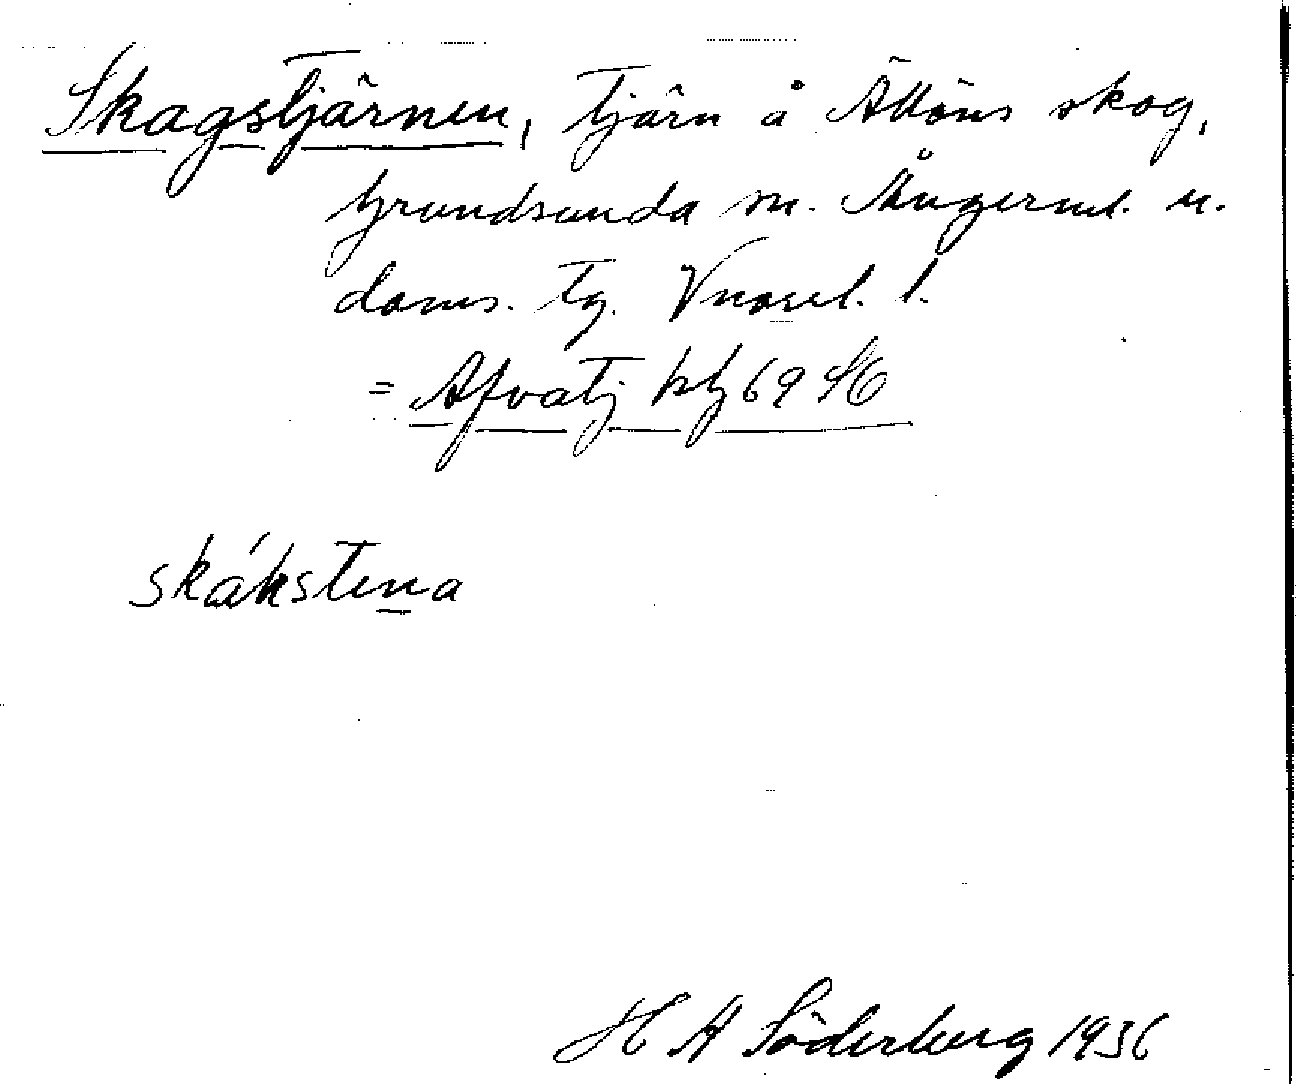 Skagstjärnen, tjärn å Ällöns skog,
Grundsunda sn. Ångerml. n.
doms. tg. Vnorrl. l.
= Afvatj bl 69 SO
skákstena
H A Söderberg 1936